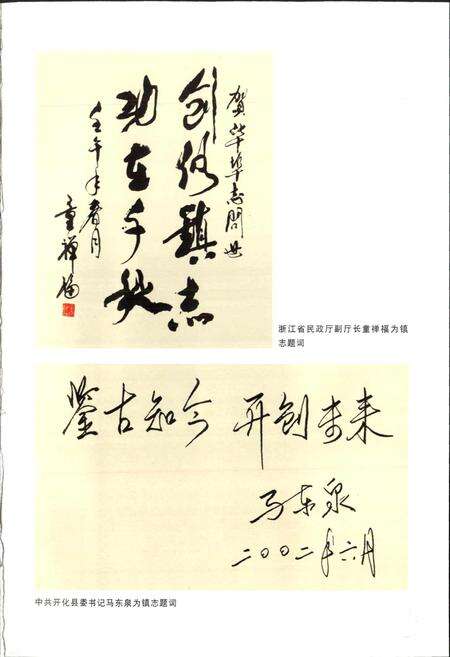 贺华埠志问世
创修镇志
功在千秋
壬午年春月
童禅福
浙江省民政厅副厅长童禅福为镇
志题词
鉴古知今 开创未来
马东泉
二〇〇二年六月
中共开化县委书记马东泉为镇志题词